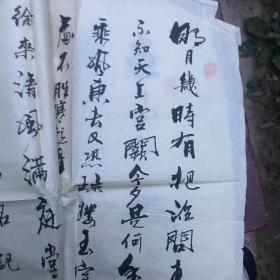 明月幾時有把酒問
不知天上宮闕今夕是何
乘風歸去又恐琼樓玉宇
處不勝寒起舞
徐來清風滿庭堂